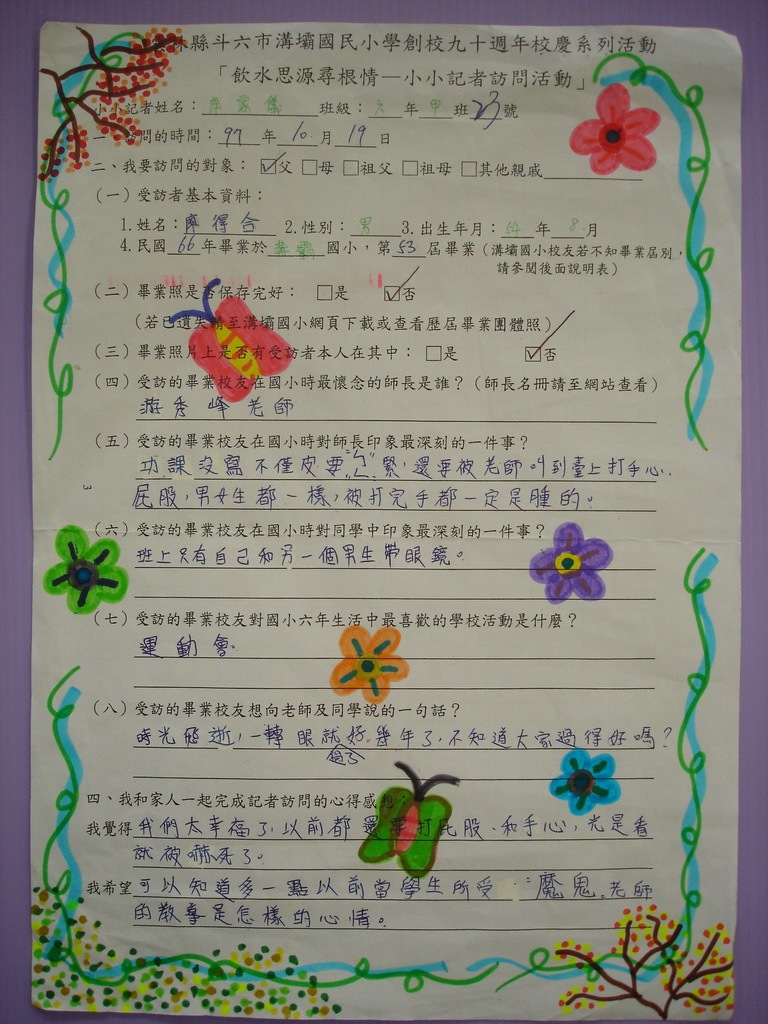 雲林縣斗六市溝壩國民小學創校九十週年校慶系列活動
「飲水思源尋根情—小小記者訪問活動」
小小記者姓名：廖 儀 班級：六 年 甲 班 23 號
一、訪問的時間：97 年 10 月 19 日
二、我要訪問的對象：☑父 □母 □祖父 □祖母 □其他親戚
（一）受訪者基本資料：
1.姓名：廖得合 2.性別：男 3.出生年月：54 年 8 月
4.民國 66 年畢業於 溝壩 國小，第 53 屆畢業（溝壩國小校友若不知畢業屆別，
請參閱後面說明表）
（二）畢業照是否保存完好： □是 ☑否
（若已遺失請至溝壩國小網頁下載或查看歷屆畢業團體照）
（三）畢業照片上是否有受訪者本人在其中：□是 ☑否
（四）受訪的畢業校友在國小時最懷念的師長是誰？（師長名冊請至網站查看）
游秀峰老師
（五）受訪的畢業校友在國小時對師長印象最深刻的一件事？
功課沒寫不僅皮要ㄅㄥ緊，還要被老師叫到臺上打手心．
屁股，男女生都一樣，被打完手都一定是腫的。
3
（六）受訪的畢業校友在國小時對同學中印象最深刻的一件事？
班上只有自己和另一個男生帶眼鏡。
（七）受訪的畢業校友對國小六年生活中最喜歡的學校活動是什麼？
運動會．
（八）受訪的畢業校友想向老師及同學說的一句話？
時光飛逝，一轉眼就過了好幾年了，不知道大家過得好嗎？
四、我和家人一起完成記者訪問的心得感想：
我覺得我們太幸福了，以前都還要打屁股、和手心，光是看
就被嚇死了。
我希望可以知道多一點以前當學生所受魔鬼老師
的教導是怎樣的心情。